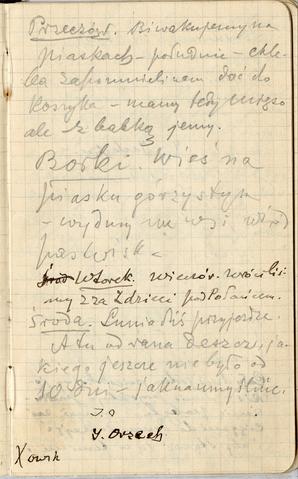 Przeczów. Biwakujemy na
piaskach - południe - chle-
ba zapomnieliśmy dać do
koszyka - mamy tedy mięso
ale z babką jemy.
Borki. Wieś na
piasku górzystym
- wydmy we wsi wśród
pastwisk -
Wtorek. wieczór. wróciliś-
my zza Zdzieci pod Połańcem.
Środa. Lunia dziś przyjedzie.
A tu od rana deszcz, ja-
kiego jeszcze nie było od
10 dni - jak na umyślnie.
J. Orzech